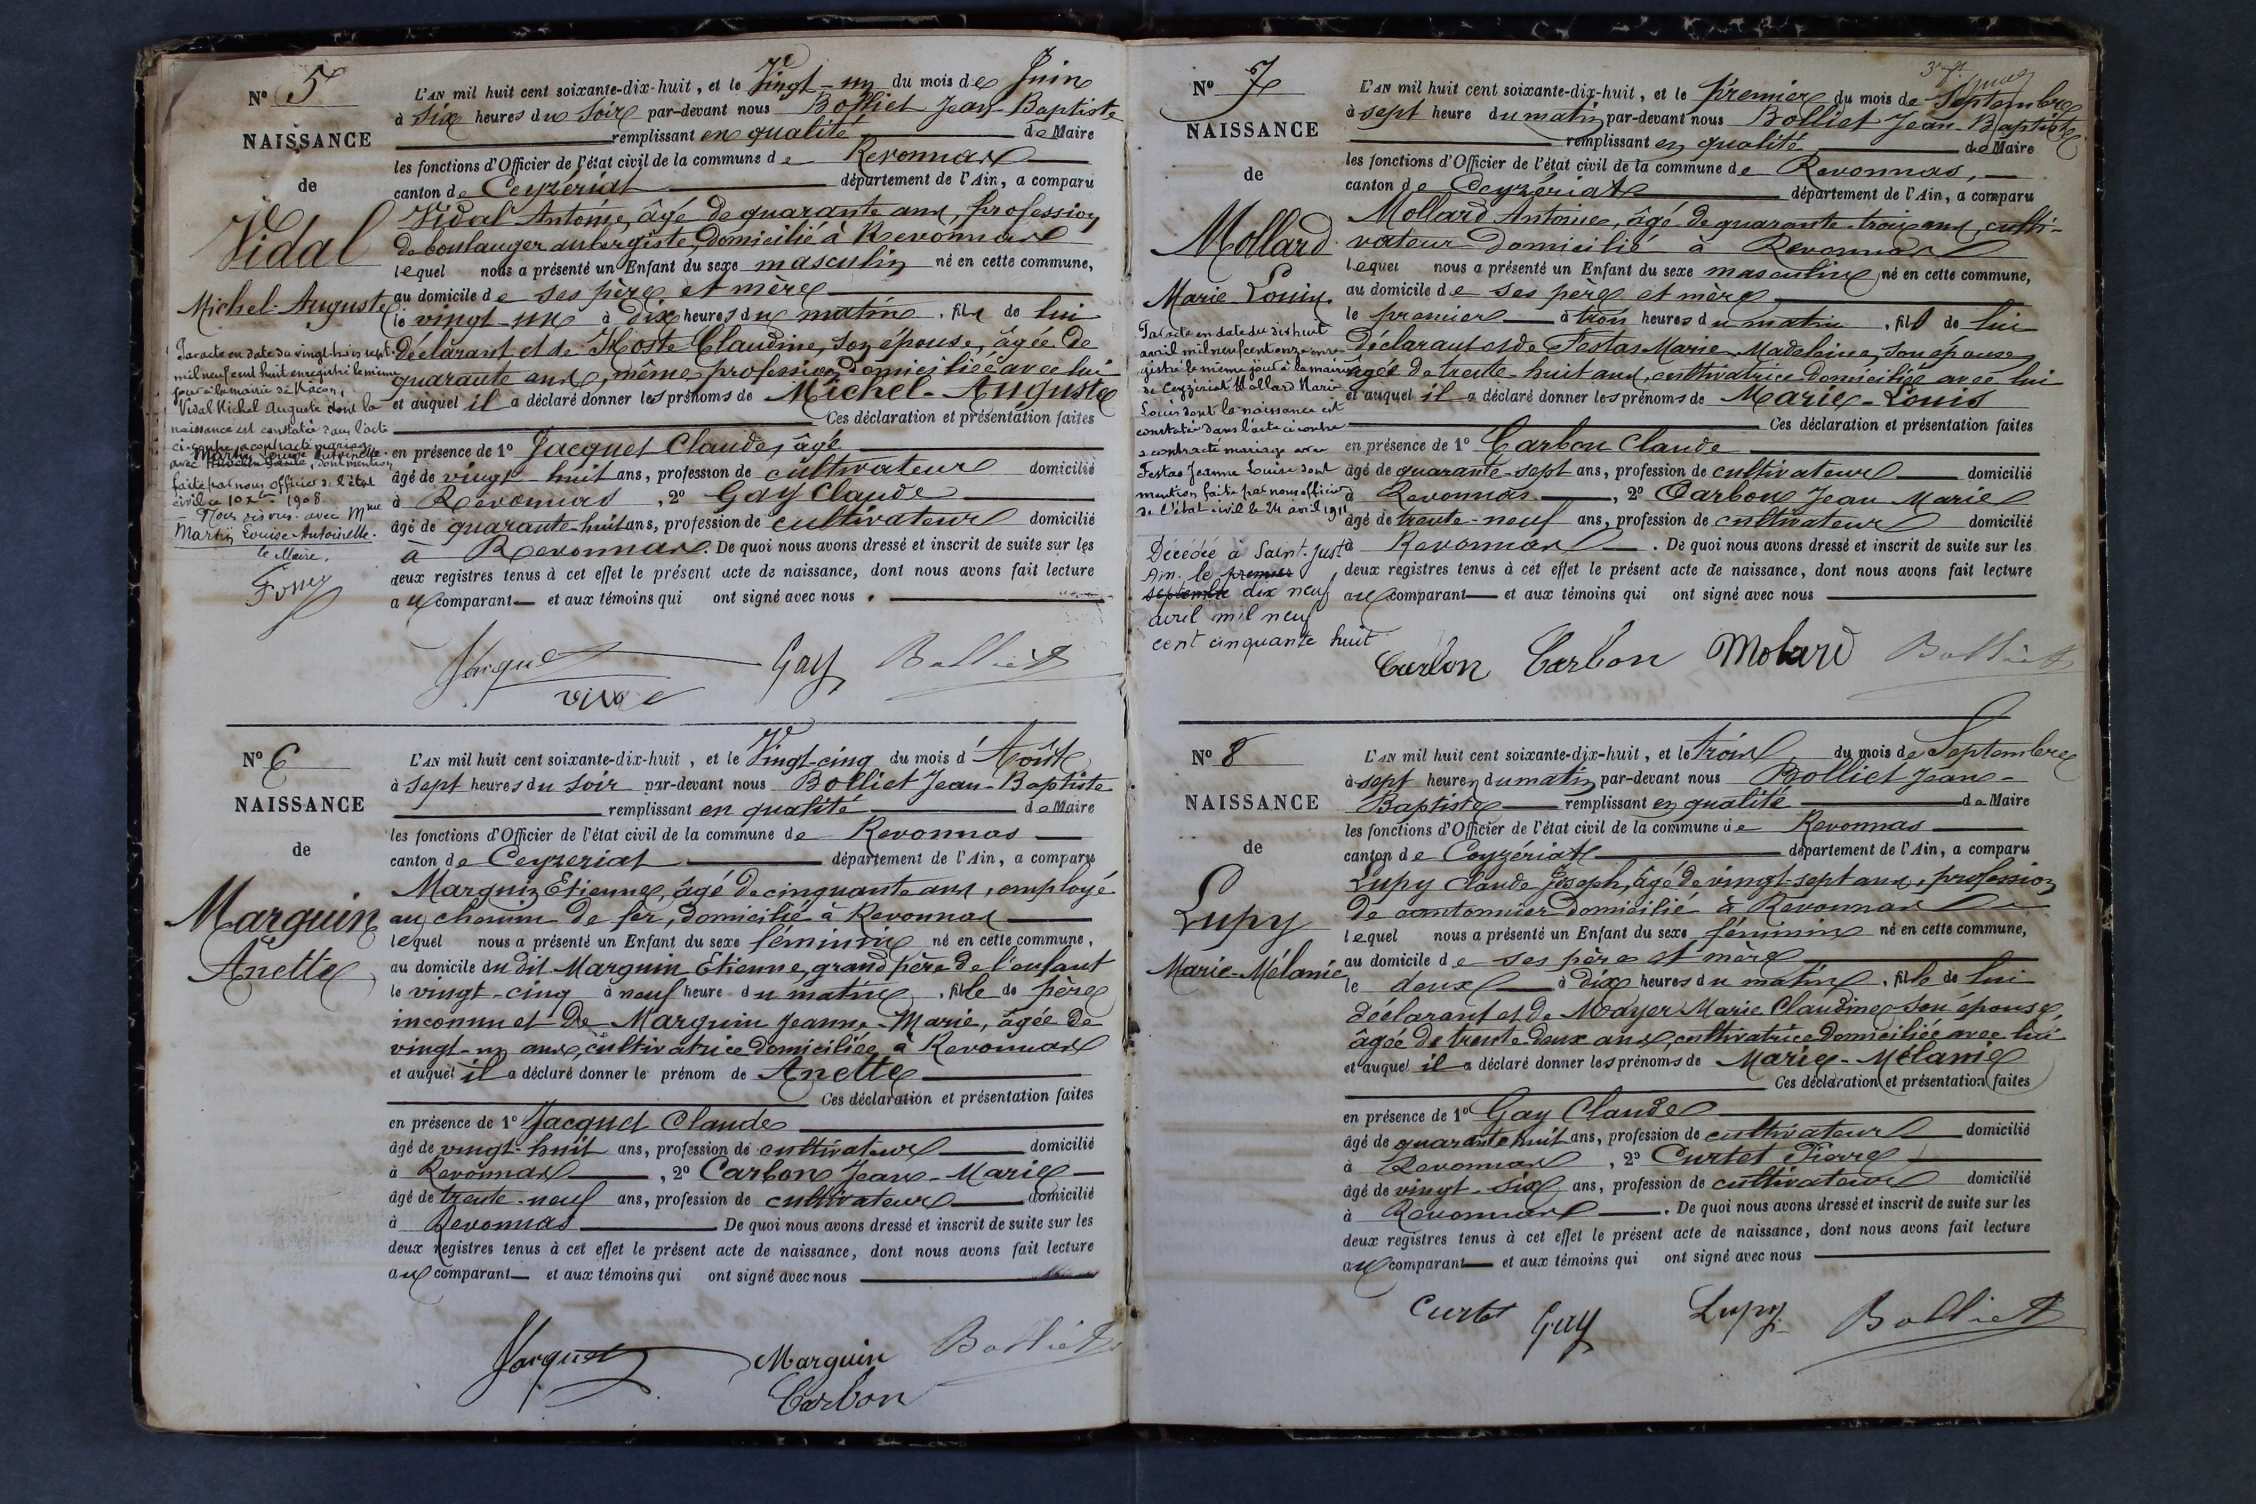 N° 5
NAISSANCE
de
Vidal
Michel-Auguste
Par acte en date du vingt-trois sept.
mil neuf cent huit enregistré le même
jour à la mairie de Macon,
Vidal Michel Auguste dont la
naissance est constatée dans l'acte
ci-contre a contracté mariage
Martin Louise Antoinette.
avec dont mention
faite par nous officier de l'état
civil ce 10 Xbre 1908.
avec Mme
Martin Louise Antoinette.
le Maire,
L'AN mil huit cent soixante-dix-huit, et le Vingt-un du mois de Juin
à six heures du soir par-devant nous Bolliet Jean-Baptiste
remplissant en qualité de Maire
les fonctions d'Officier de l'état civil de la commune de Revonnas
canton de Ceyzeriat département de l'Ain, a comparu
Vidal Antoine, âgé de quarante ans, profession
de boulanger aubergiste, domicilié à Revonnas
lequel nous a présenté un Enfant du sexe masculin né en cette commune,
au domicile de ses père et mère
le vingt-un à dix heures du matin, fils de lui
déclarant et de Hoste Claudine, son épouse, âgée de
quarante ans, même profession domiciliée avec lui
et auquel il a déclaré donner les prénoms de Michel-Auguste
Ces déclaration et présentation faites
en présence de 1° Jacquet Claude, âgé
âgé de vingt huit ans, profession de cultivateur domicilié
à Revonnas, 2° Gay Claude
âgé de quarante-huit ans, profession de cultivateur domicilié
à Revonnas. De quoi nous avons dressé et inscrit de suite sur les
deux registres tenus à cet effet le présent acte de naissance, dont nous avons fait lecture
au comparant et aux témoins qui ont signé avec nous.
Jacquet Gay Bolliet
N° 6
NAISSANCE
de
Marguin
Anette
L'AN mil huit cent soixante-dix-huit, et le Vingt-cinq du mois d'Août
à sept heures du soir par-devant nous Bolliet Jean-Baptiste
remplissant en qualité de Maire
les fonctions d'Officier de l'état civil de la commune de Revonnas
canton de Ceyzeriat département de l'Ain, a comparu
Marguin Etienne, âgé de cinquante ans, employé
au chemin de fer, domicilié à Revonnas
lequel nous a présenté un Enfant du sexe féminin né en cette commune,
au domicile du dit Marguin Etienne, grand père de l'enfant
le vingt-cinq à neuf heure du matin, fille de père
inconnu et de Marguin Jeanne-Marie, âgée de
vingt-un ans, cultivatrice domiciliée à Revonnas
et auquel il a déclaré donner le prénom de Anette
Ces déclaration et présentation faites
en présence de 1° Jacquet Claude
âgé de vingt-huit ans, profession de cultivateur domicilié
à Revonnas, 2° Carbon Jean-Marie
âgé de trente-neuf ans, profession de cultivateur domicilié
à Revonnas De quoi nous avons dressé et inscrit de suite sur les
deux registres tenus à cet effet le présent acte de naissance, dont nous avons fait lecture
au comparant et aux témoins qui ont signé avec nous
Jacquet Marguin Bolliet
Carbon
N° 7
NAISSANCE
de
Mollard
Marie Louis
Par acte en date du dix huit
avril mil neuf cent onze enre-
gistré le même jour à la mairie
de Ceyzeriat Mollard Marie
Louis dont la naissance est
constatée dans l'acte ci contre
a contracté mariage avec
Festas Jeanne Louise dont
mention faite par nous officier
de l'état civil le 24 avril 1911
Décédé à Saint-Just
Ain. le premier
septembre dix neuf
avril mil neuf
cent cinquante huit
L'AN mil huit cent soixante-dix-huit, et le Premier du mois de Septembre
à sept heure du matin par-devant nous Bolliet Jean-Baptiste
remplissant en qualité de Maire
les fonctions d'Officier de l'état civil de la commune de Revonnas,
canton de Ceyzériat département de l'Ain, a comparu
Mollard Antoine, âgé de quarante-trois ans, culti-
vateur domicilié à Revonnas
lequel nous a présenté un Enfant du sexe masculin né en cette commune,
au domicile de ses père et mère
le premier à trois heures du matin, fils de lui
déclarant et de Festas Marie-Madeleine, son épouse
âgée de trente-huit ans, cultivatrice domiciliée avec lui
et auquel il a déclaré donner les prénoms de Marie-Louis
Ces déclaration et présentation faites
en présence de 1° Carbon Claude
âgé de quarante-sept ans, profession de cultivateur domicilié
à Revonnas, 2° Carbon Jean Marie
âgé de trente-neuf ans, profession de cultivateur domicilié
à Revonnas. De quoi nous avons dressé et inscrit de suite sur les
deux registres tenus à cet effet le présent acte de naissance, dont nous avons fait lecture
au comparant et aux témoins qui ont signé avec nous
Carbon Carbon Molard Bolliet
N° 8
NAISSANCE
de
Lupy
Marie-Mélanie
L'AN mil huit cent soixante-dix-huit, et le trois du mois de Septembre
à sept heures du matin par-devant nous Bolliet Jean-
Baptiste remplissant en qualité de Maire
les fonctions d'Officier de l'état civil de la commune de Revonnas
canton de Ceyzériat département de l'Ain, a comparu
Lupy Claude Joseph, âgé de vingt-sept ans, profession
de cantonnier domicilié à Revonnas
lequel nous a présenté un Enfant du sexe féminin né en cette commune,
au domicile de ses père et mère
le deux à dix heures du matin, fille de lui
déclarant et de Mayer Marie Claudine son épouse,
âgée de trente-deux ans, cultivatrice domiciliée avec lui
et auquel il a déclaré donner les prénoms de Marie-Mélanie
Ces déclaration et présentation faites
en présence de 1° Gay Claude
âgé de quarante huit ans, profession de cultivateur domicilié
à Revonnas, 2° Curtet Pierre
âgé de vingt-six ans, profession de cultivateur domicilié
à Revonnas. De quoi nous avons dressé et inscrit de suite sur les
deux registres tenus à cet effet le présent acte de naissance, dont nous avons fait lecture
au comparant et aux témoins qui ont signé avec nous
Curtet Gay Lupy Bolliet